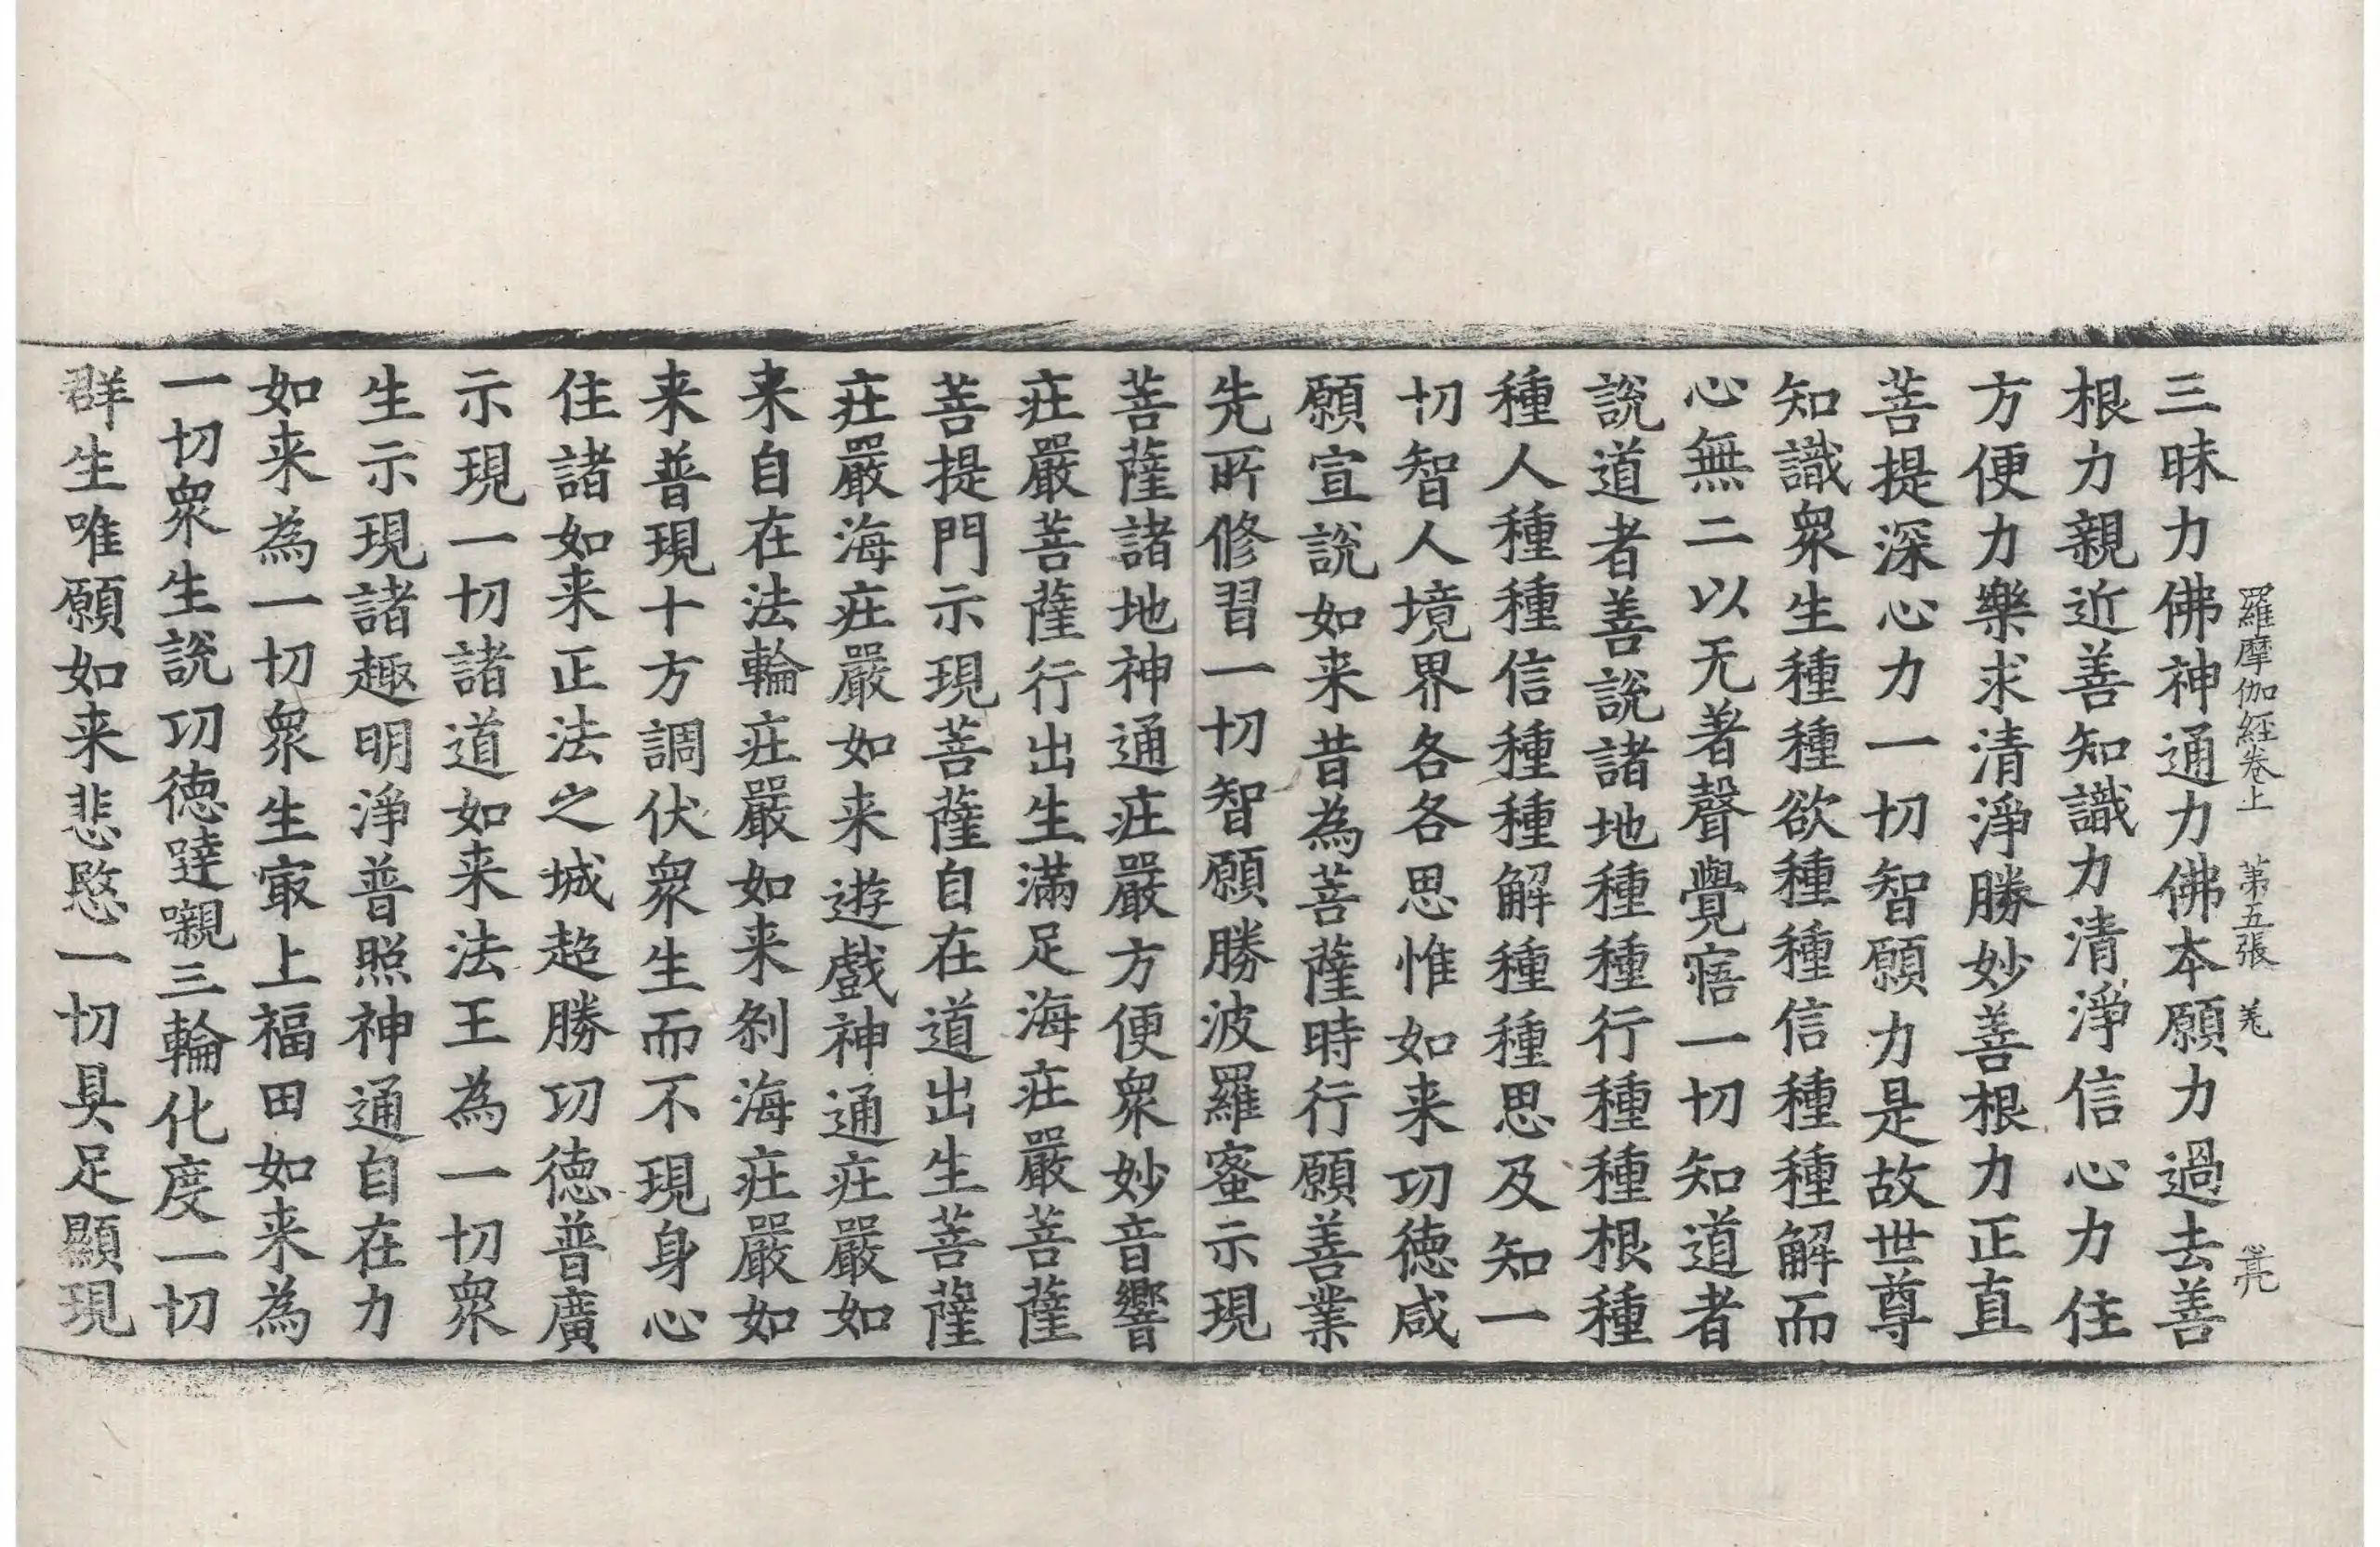 羅摩伽経巻上 第五張 羌
三昧力佛神通力佛本願力過去善
根力親近善知識力清淨信心力住
方便力樂求清淨勝妙善根力正直
菩提深心力一切智願力是故世尊
知識衆生種種欲種種信種種解而
心無二以无著聲覺寤一切知道者
說道者善說諸地種種行種種根種
種人種種信種種解種種思及知一
切智人境界各各思惟如来功徳咸
願宣說如来昔為菩薩時行願善業
先所修習一切智願勝波羅蜜示現
菩薩諸地神通莊嚴方便衆妙音響
莊嚴菩薩行出生滿足海莊嚴菩薩
菩提門示現菩薩自在道出生菩薩
莊嚴海莊嚴如来遊戲神通莊嚴如
来自在法輪莊嚴如来刹海莊嚴如
来普現十方調伏衆生而不現身心
住諸如来正法之城超勝功徳普廣
示現一切諸道如来法王為一切衆
生示現諸趣明淨普照神通自在力
如来為一切衆生冣上福田如来為
一切衆生說功徳躂嚫三輪化度一切
群生唯願如来悲愍一切具足顯現